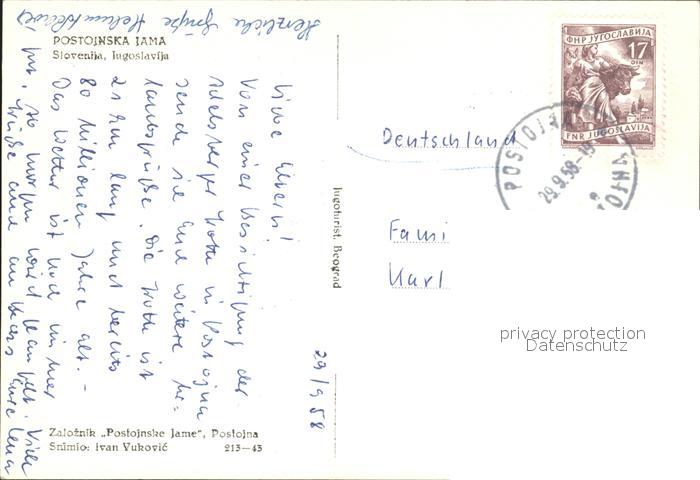 POSTOJNSKA JAMA
Slovenija, Jugoslavija
29/9 58
Liebe
Von einer Besichtigung der
Adelsberger Grotte in Postojna
sende ich Euch weitere
Die Grotte ist
21 km lang und bereits
80 Millionen Jahre alt. –
Das Wetter ist noch immer
gut, so morgen wird Viele
Grüße und
Herzliche Grüße
Založnik „Postojnske Jame", Postojna
Snimio: Ivan Vuković 213—43
Jugoturist, Beograd
ФНР ЈУГОСЛАВИЈА
17
DIN
FNR JUGOSLAVIJA
POSTOJNA
29.9.58-19
Deutschland
Fami
Karl
privacy protection
Datenschutz